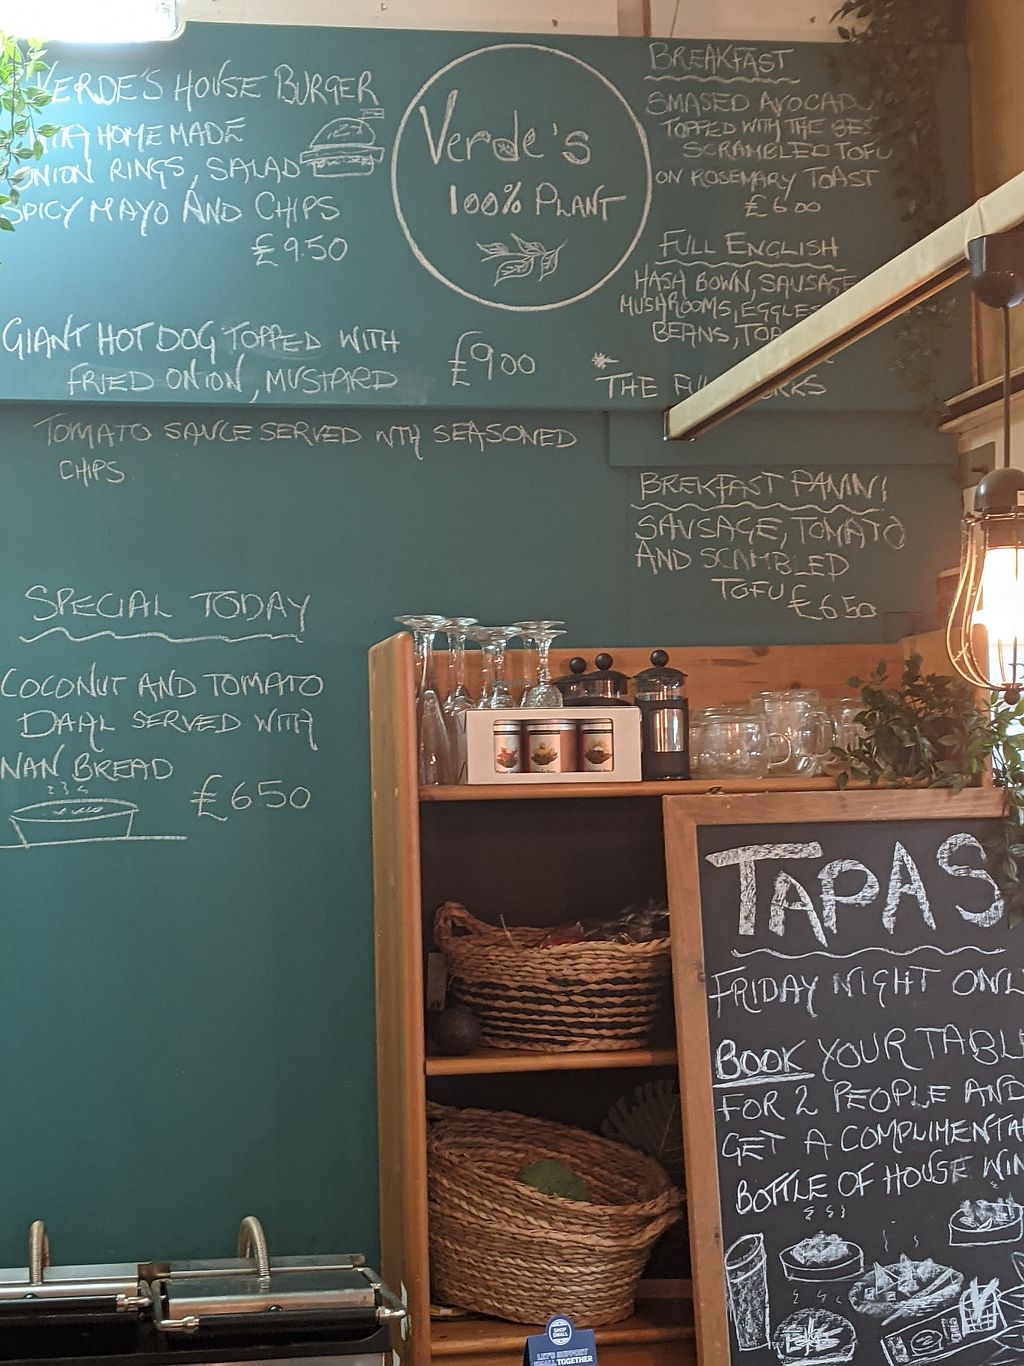 VERDE'S HOUSE BURGER
HOMEMADE
ONION RINGS, SALAD
SPICY MAYO AND CHIPS
£9.50
GIANT HOT DOG TOPPED WITH
FRIED ONION, MUSTARD
£9.00
TOMATO SAUCE SERVED WITH SEASONED
CHIPS
SPECIAL TODAY
COCONUT AND TOMATO
DAHL SERVED WITH
NAN BREAD
£6.50
Verde's
100% PLANT
BREAKFAST
SMASED AVOCADO
TOPPED WITH THE BES
SCRAMBLED TOFU
ON ROSEMARY TOAST
£6.00
FULL ENGLISH
HASH BOWN, SAUSAGE
MUSHROOMS, EGGLES
BEANS,
THE
BREKFAST PANINI
SAUSAGE, TOMATO
AND SCAMBLED
TOFU £6.50
TAPAS
FRIDAY NIGHT ONL
BOOK YOUR TABL
FOR 2 PEOPLE AND
GET A COMPLIMENTA
BOTTLE OF HOUSE WIN
SHOP
SMALL
LET'S SUPPORT
SMALL TOGETHER